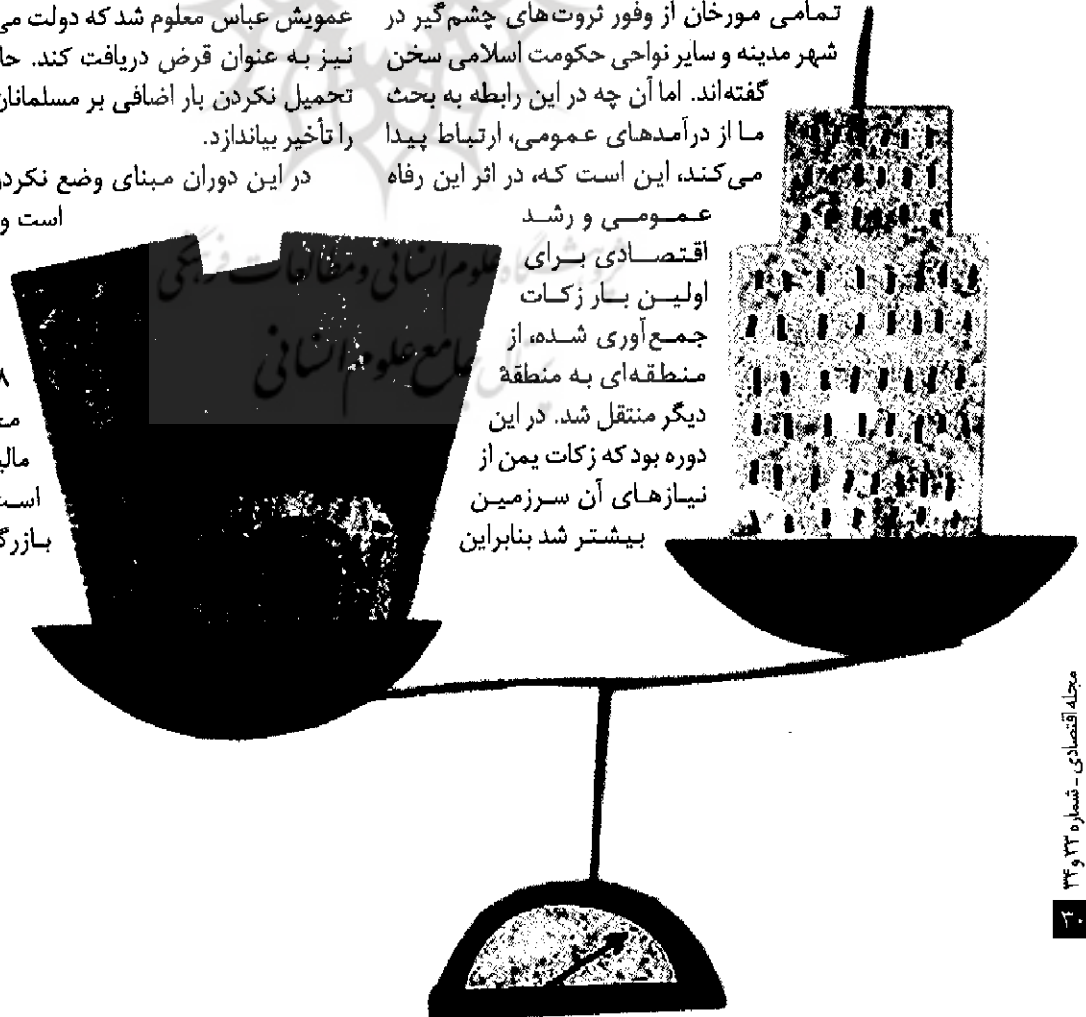 تمامی مورخان از وفور ثروت‌های چشم‌گیر در
شهر مدینه و سایر نواحی حکومت اسلامی سخن
گفته‌اند. اما آن چه در این رابطه به بحث
ما از درآمدهای عمومی، ارتباط پیدا
می‌کند، این است که، در اثر این رفاه
عمومی و رشد
اقتصادی برای
اولین بار زکات
جمع‌آوری شده، از
منطقه‌ای به منطقهٔ
دیگر منتقل شد. در این
دوره بود که زکات یمن از
نیازهای آن سرزمین
بیشتر شد بنابراین
عمویش عباس معلوم شد که دولت می
نیز به عنوان قرض دریافت کند. حا
تحمیل نکردن بار اضافی بر مسلمانان
را تأخیر بیاندازد.
در این دوران مبنای وضع نکردن
است و
۸
مالی
است
بازرگ
پژوهشگاه علوم انسانی و مطالعات فرهنگی
پرتال جامع علوم انسانی
مجله اقتصادی - شماره ۳۳ و ۳۴
۳۰